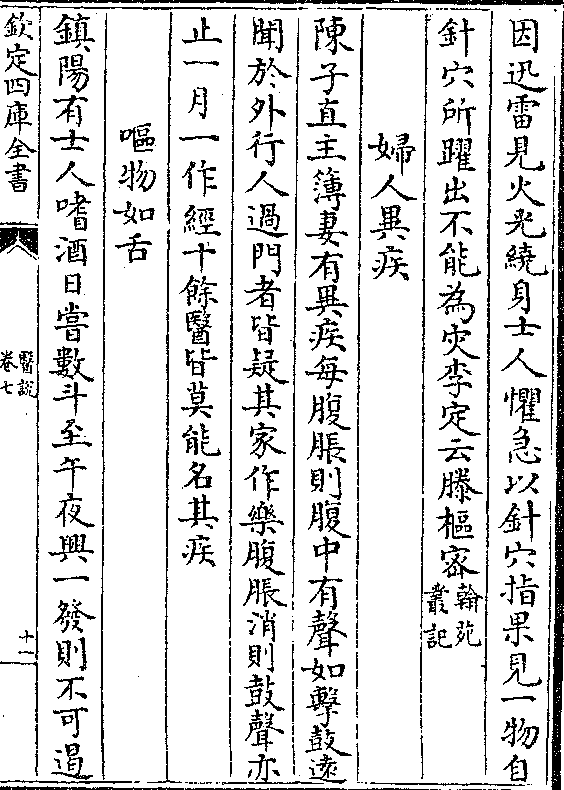 因迅雷見火光繞身士人懼急以針穴指果見一物自
針穴所躍出不能為灾李定云滕樞宻翰苑叢記
婦人異疾
陳子直主簿妻有異疾每腹脹則腹中有聲如擊鼓逺
聞於外行人過門者皆疑其家作樂腹脹消則鼓聲亦
止一月一作經十餘醫皆莫能名其疾
嘔物如舌
鎮陽有士人嗜酒日嘗數斗至午夜興一發則不可遏
欽定四庫全書
醫說
卷七
十一